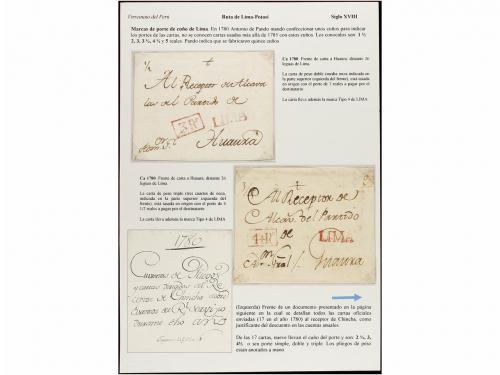 Virreinato del Perú Ruta de Lima-Potosí Siglo XVIII
Marcas de porte de cuño de Lima. En 1780 Antonio de Pando mandó confeccionar unos cuños para indicar
los portes de las cartas, no se conocen cartas usadas más allá de 1785 con estos cuños. Los conocidos son 1 ½
2, 3, 3 ½, 4 ½ y 5 reales. Pando indica que se fabricaron quince cuños
½
Al Receptor de Alcava
las del Partido de
3R
LIMA
Huaura
Ca 1780 Frente de carta a Huaura, distante 26
leguas de Lima.
La carta de peso doble (media onza indicada en
la parte superior izquierda del frente), está usada
en origen con el porte de 3 reales a pagar por el
destinatario
La carta lleva además la marca Tipo 4 de LIMA
Ca 1780 Frente de carta a Huaura, distante 26
leguas de Lima.
La carta de peso triple (tres cuartos de onza,
indicada en la parte superior izquierda del
frente), está usada en origen con el porte de 4
1/2 reales a pagar por el destinatario
La carta lleva además la marca Tipo 4 de LIMA
Al Receptor de
Alcav. del Partido
de
LIMA
Huaura
1780
Cubiertas de Pliegos
y cartas dirigidas al Re
ceptor de Chincha sobre
Asuntos del Rl. Servicio
durante dho año
(Izquierda) Frente de un documento presentado en la página
siguiente en la cual se detallan todos las cartas oficiales
enviadas (17 en el año 1780) al receptor de Chincha, como
justificante del descuento en las cuentas anuales
De las 17 cartas, nueve llevan el cuño del porte y son: 2 ½, 3,
4½ o sea porte simple, doble y triple. Los pliegos de peso
están anotados a mano